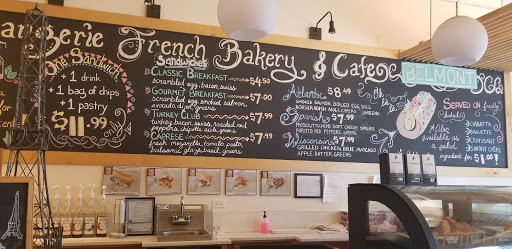 French Bakery & Cafe
BELMONT
Sandwiches
One Sandwich,
+ 1 drink
+ 1 bag of chips
+ 1 pastry
$11.99
CLASSIC BREAKFAST $4.50
scrambled egg, bacon, swiss
GOURMET BREAKFAST $7.00
scrambled egg, smoked salmon,
avocado, dijon, greens
TURKEY CLUB $7.99
turkey, bacon, swiss, roasted red
peppers, greens
CAPRESE $7.99
fresh mozzarella, tomato, pesto,
balsamic glaze, basil, greens
Atlantic $8.49
SMOKED SALMON, BOILED EGG, DILL
HORSERADISH AIOLI, CHIVES, GREENS
Spanish $7.99
ROASTED RED PEPPERS, GREENS
Wisconsin $7.49
GRILLED CHICKEN, BRIE, AVOCADO
APPLE BUTTER, GREENS
SERVED ON freshly
baked:
CIABATTA
BAGUETTE
CROISSANT
SAVORY CRÊPE
*Also
available as
a salad
ingredient for
$1.00!